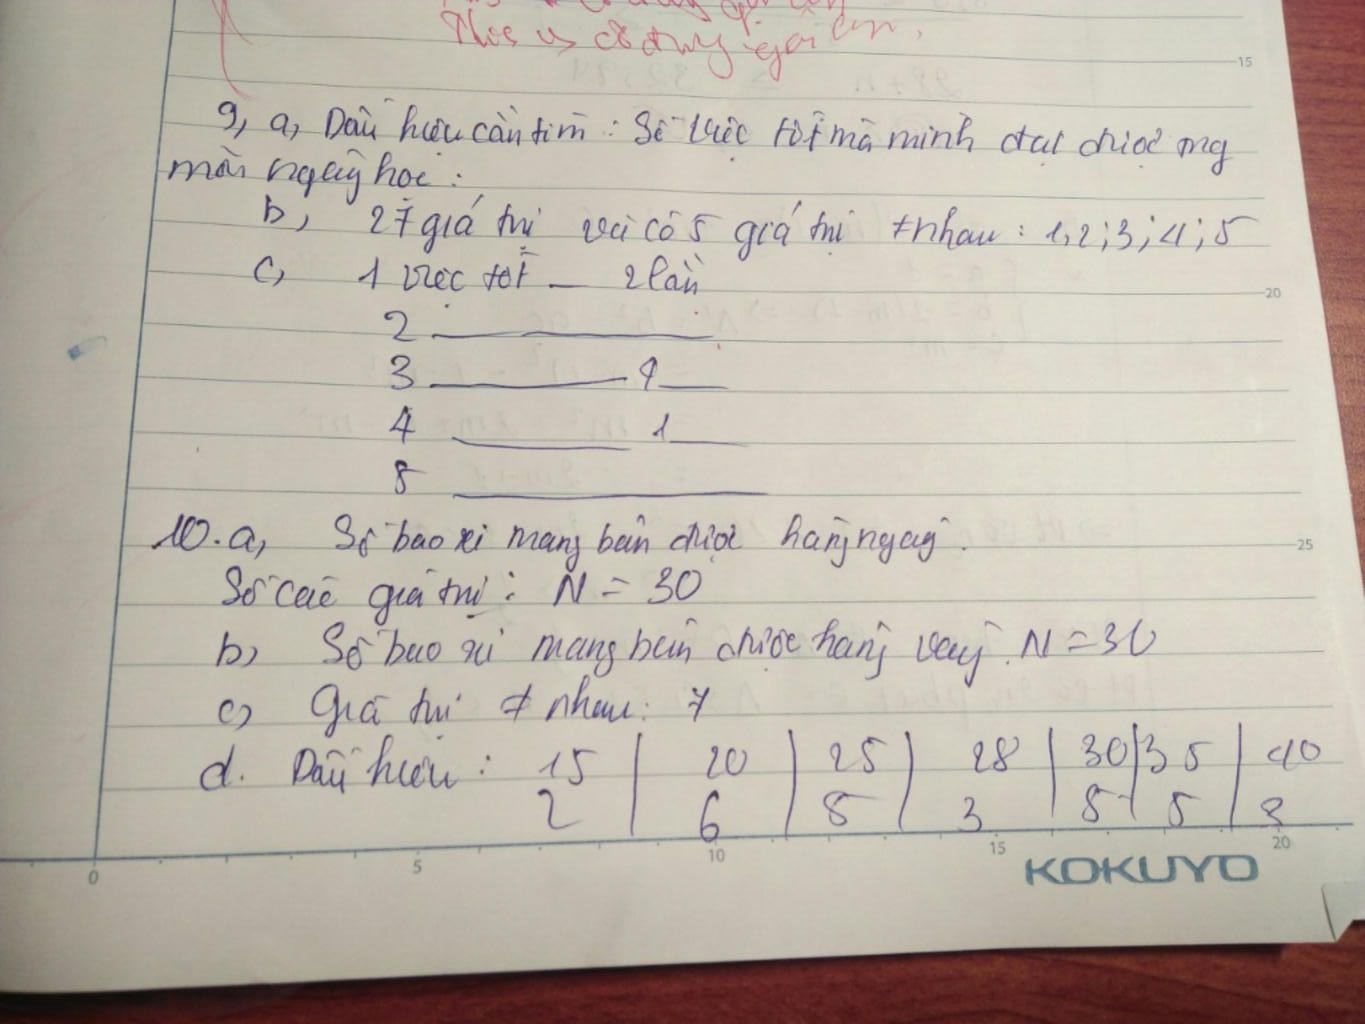 9, a, Dấu hiệu cần tìm : Số việc tốt mà mình đạt được
mỗi ngày học :
b, 27 giá trị và có 5 giá trị ≠ nhau : 1, 2 ; 3 ; 4 ; 5
c, 1 việc tốt — 2 lần
2 ———
3 ——— 9 ——
4 ——— 1 ——
5 ———
10. a, Số bao xi măng bán được hằng ngày.
Số các giá trị : N = 30
b) Số bao xi măng bán được hằng N = 30
c) Giá trị ≠ nhau : 7
d. Dấu hiệu : 15 | 20 | 25 | 28 | 30 | 35 | 40
2 | 6 | 8 | 3 | 8 | 5 | 3
15
20
25
0 5 10 15 20
KOKUYO